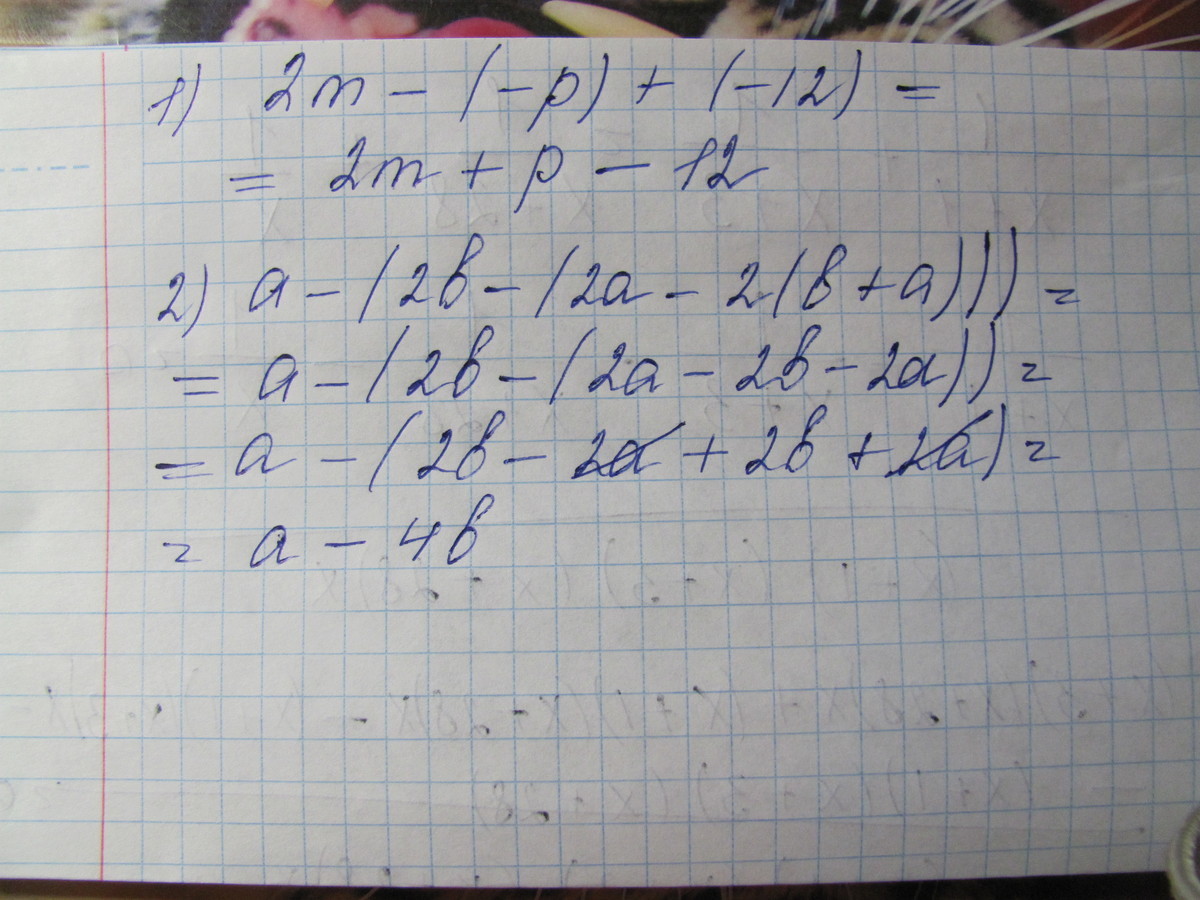 1) 2m - (-p) + (-12) =
= 2m + p - 12
2) a - (2b - (2a - 2(b + a))) =
= a - (2b - (2a - 2b - 2a)) =
= a - (2b - 2a + 2b + 2a) =
= a - 4b